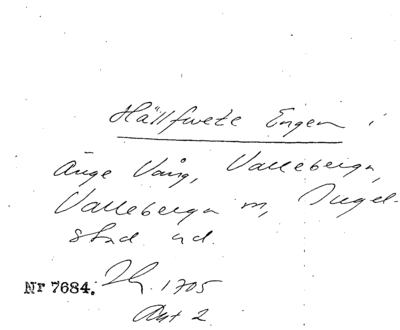 Hällfwete Engen i
Änge Vång, Valleberga,
Valleberga sn, Ingel-
stad hd.
Nr 7684. Jb. 1705
Akt 2